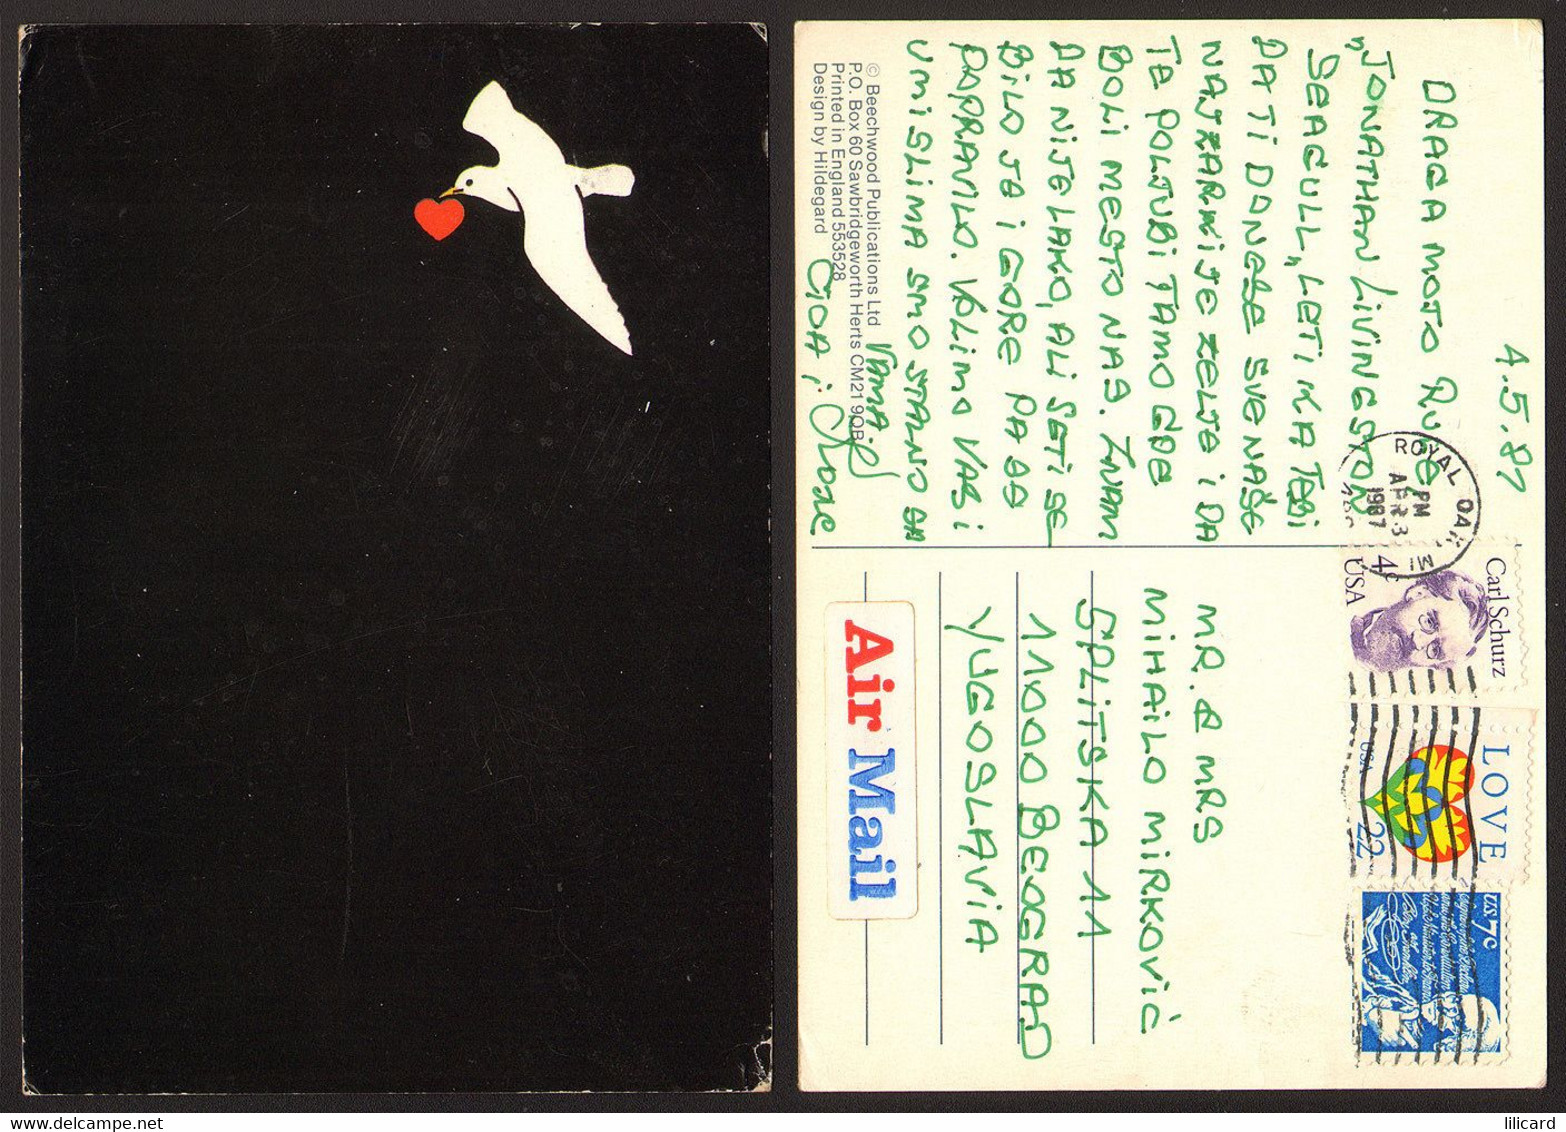 4.5.87
DRAGA MOJO RUŽE,
„JONATHAN LIVINGSTON
SEAGULL„ LETI KA TEBI
DA TI DONESE SVE NAŠE
NAJŽARKIJE ŽELJE I DA
TE POLJUBI TAMO GDE
BOLI MESTO NAS. ZNAM
DA NIJE LAKO, ALI SETI SE
BILO JE I GORE PA SE
POPRAVILO. VOLIMO VAS I
U MISLIMA SMO STALNO SA
VAMA.
CICA I
© Beechwood Publications Ltd
P.O. Box 60 Sawbridgeworth Herts CM21 9QB
Printed in England 553528
Design by Hildegard
ROYAL OAK, MI
PM
APR 3
1987
Carl Schurz
4c
USA
LOVE
USA 22
US 7c
MR. & MRS
MIHAILO MIRKOVIĆ
SPLITSKA 11
11000 BEOGRAD
YUGOSLAVIA
Air Mail
lilicard